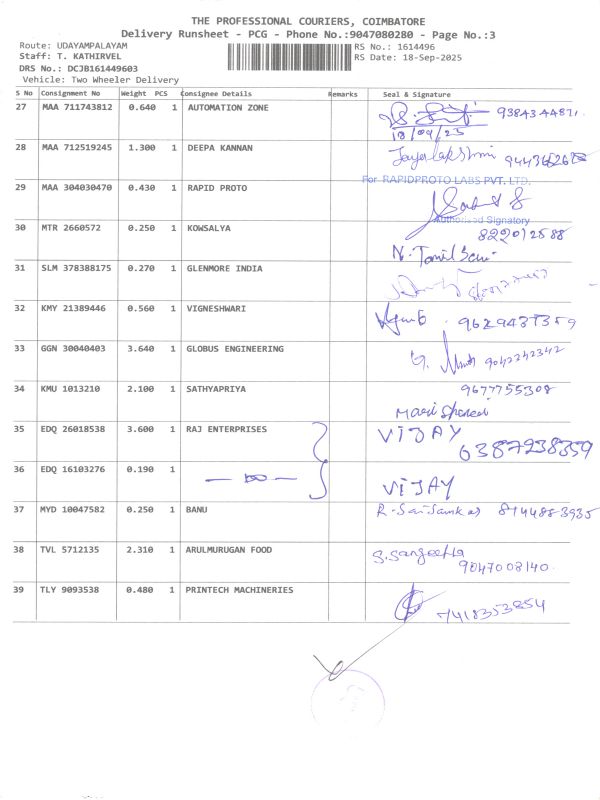 THE PROFESSIONAL COURIERS, COIMBATORE
Delivery Runsheet - PCG - Phone No.:9047080280 - Page No.:3
Route: UDAYAMPALAYAM RS No.: 1614496
Staff: T. KATHIRVEL RS Date: 18-Sep-2025
DRS No.: DCJB161449603
Vehicle: Two Wheeler Delivery
S No Consignment No Weight PCS Consignee Details Remarks Seal & Signature
27 MAA 711743812 0.640 1 AUTOMATION ZONE
28 MAA 712519245 1.300 1 DEEPA KANNAN Jayalakshmi
For RAPIDPROTO LABS PVT. LTD.
29 MAA 304030470 0.430 1 RAPID PROTO
Authorised Signatory
30 MTR 2660572 0.250 1 KOWSALYA 8220012588
31 SLM 378388175 0.270 1 GLENMORE INDIA
32 KMY 21389446 0.560 1 VIGNESHWARI 9629437359
33 GGN 30040403 3.640 1 GLOBUS ENGINEERING 9042242342
34 KMU 1013210 2.100 1 SATHYAPRIYA 9677755308
35 EDQ 26018538 3.600 1 RAJ ENTERPRISES VIJAY
6387238359
36 EDQ 16103276 0.190 1 — DO — VIJAY
37 MYD 10047582 0.250 1 BANU R. Sai Sankar 8144883935
38 TVL 5712135 2.310 1 ARULMURUGAN FOOD S. Sangeetha
9047008140
39 TLY 9093538 0.480 1 PRINTECH MACHINERIES 7418353854